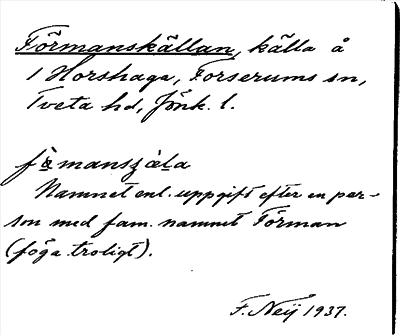 Förmanskällan, källa å
1 Horshaga, Forserums sn,
Tveta hd, Jönk. l.
Namnet enl. uppgift efter en per-
son med fam. namnet Förman
(föga troligt).
F. Neij 1937.